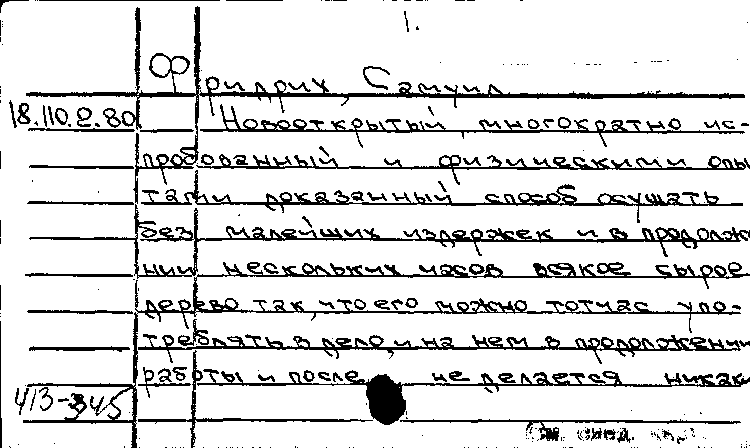 1.
Фридрих, Самуил
18.110.2.80 Новооткрытый, многократно ис-
пробованный и физическими опы
тами доказанный способ осушать
без малейших издержек и в продолже
нии нескольких часов всякое сырое
дерево так, что его можно тотчас упо-
треблять в дело, и на нем в продолжении
работы и после не делается никак
413-345
См. след.